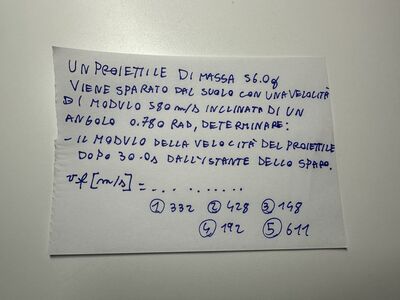 UN PROIETTILE DI MASSA 56.0g
VIENE SPARATO DAL SUOLO CON UNA VELOCITÀ
DI MODULO 580 m/s INCLINATA DI UN
ANGOLO 0.780 RAD, DETERMINARE:
- IL MODULO DELLA VELOCITÀ DEL PROIETTILE
DOPO 30.0s DALL'ISTANTE DELLO SPARO.
vf [m/s] = ... .......
① 332 ② 428 ③ 148
④ 192 ⑤ 611